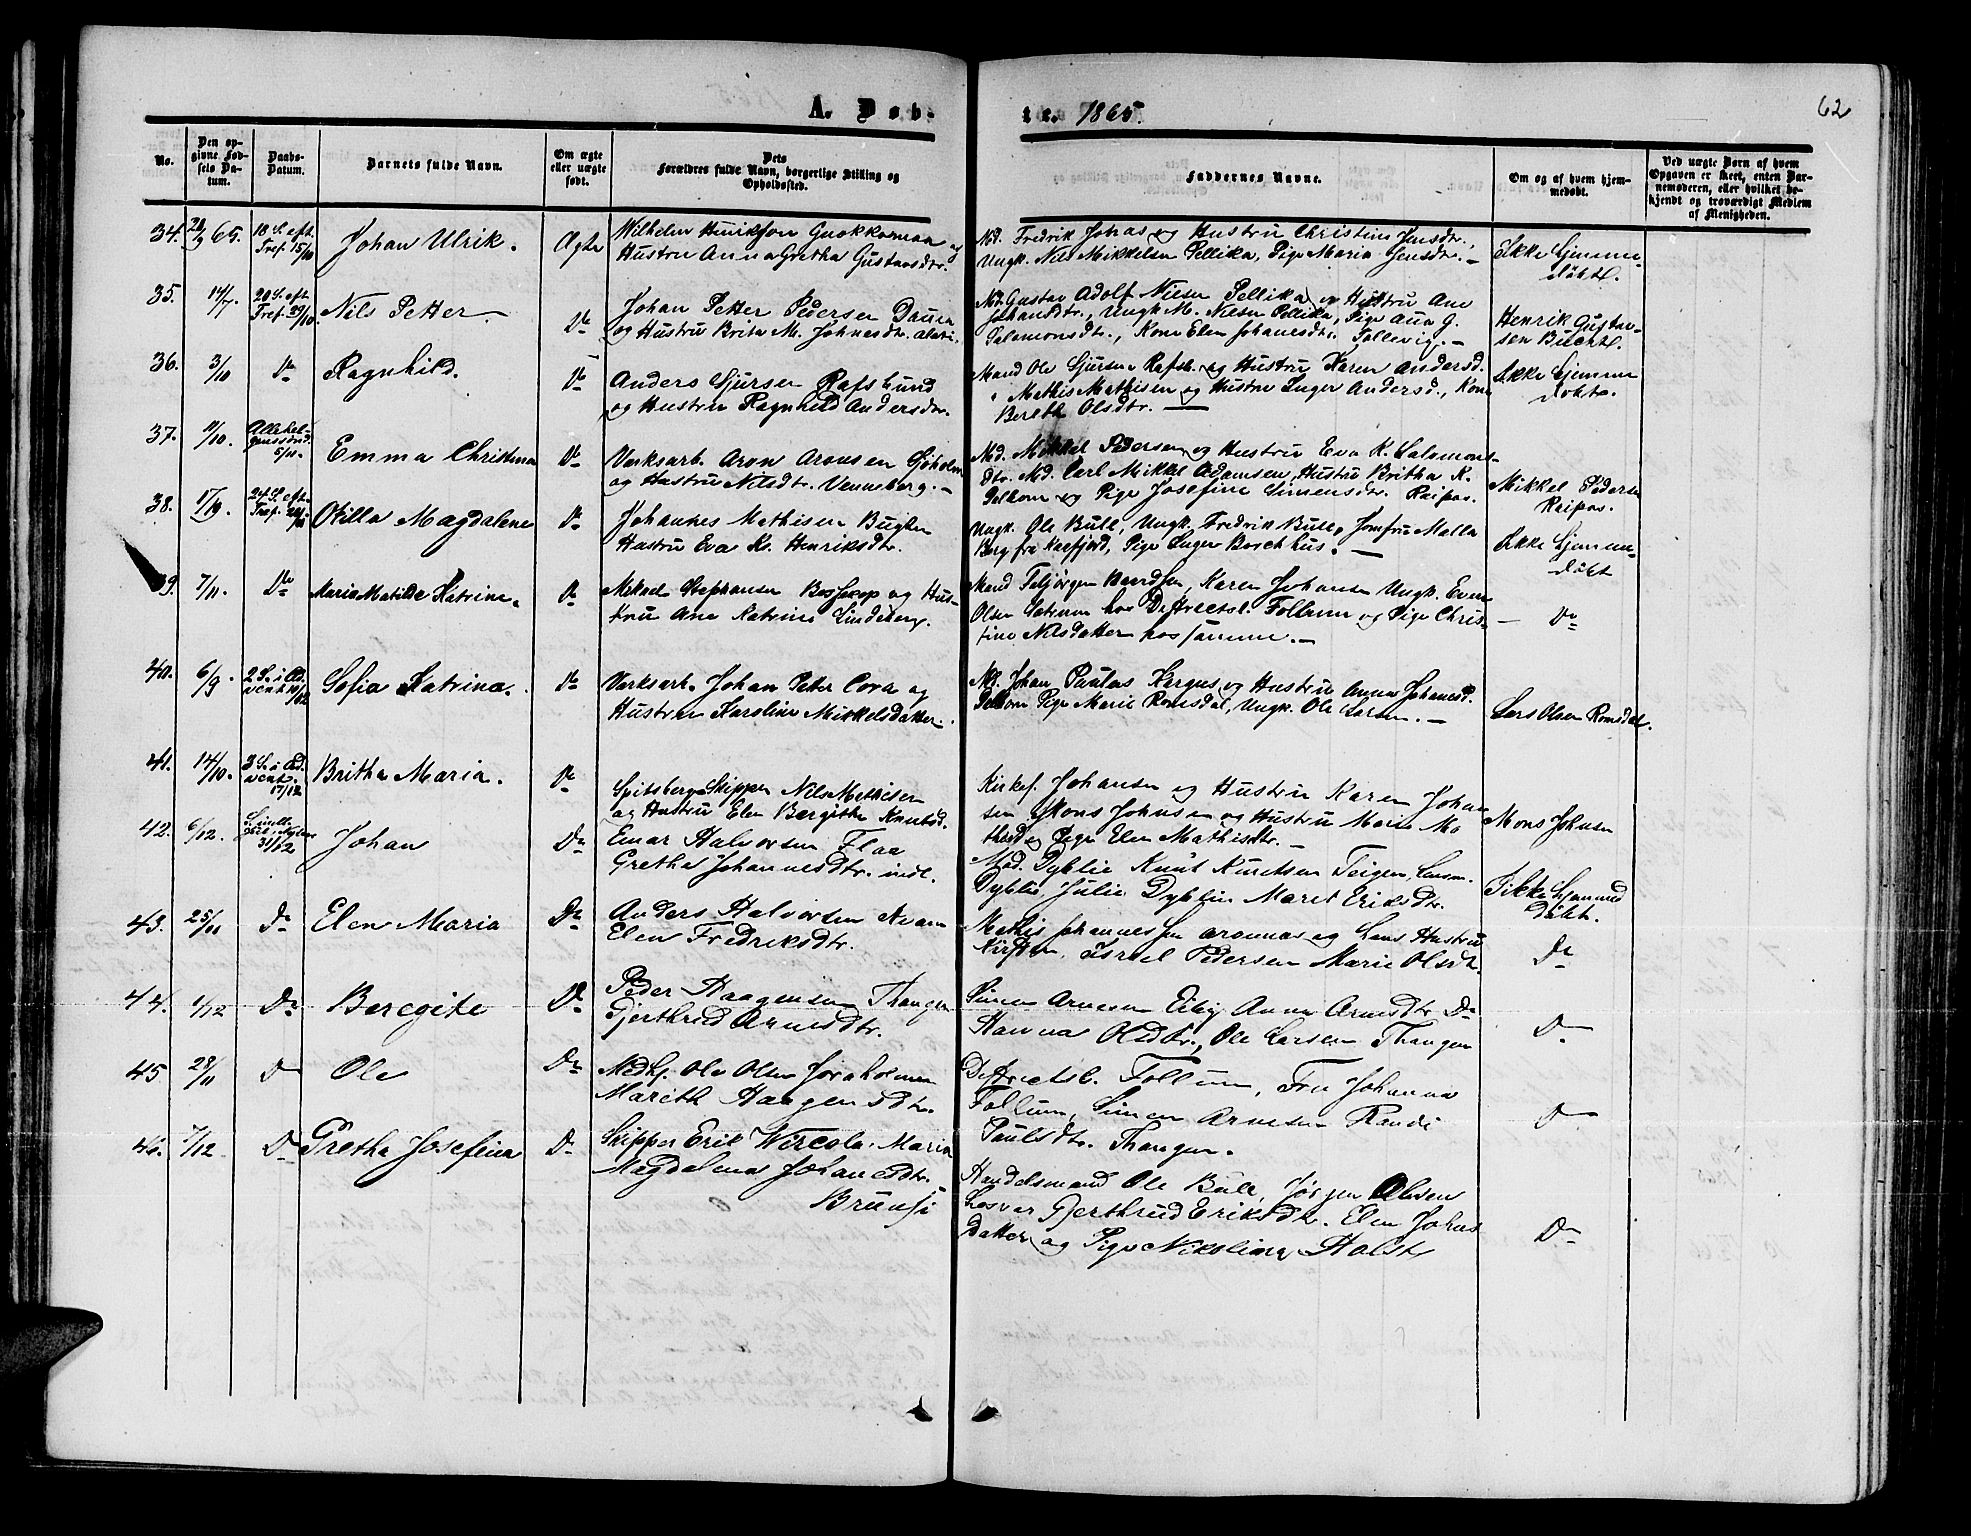 A. Døb-
te. 1865.
62
No.
Den op-
givne Fød-
sels Da-
tum.
Daabs-
Datum.
Barnets fulde Navn.
Om ægte
eller uægte
født.
Dets
Forældres fulde Navn, borgerlige Stilling og
Opholdssted.
Faddernes Navne.
Om og af hvem hjem-
medøbt.
Ved uægte Børn af hvem
Opgaven er skeet, enten Bar-
nemoderen, eller hvilket be-
kjendt og troværdigt Medlem
af Menigheden.
34. 28/9 65. 18 S. eft. Tref. 15/10 Johan Ulrik. Ægte
Wilhelm Henriksen og
Hustru Anna Gretha Gustavsdtr.
Md. Fredrik Johns og Hustru Christine Jensdtr.,
Ungk. Nils Mikkelsen Pellika, Pige Maria Jensdtr. —
Ikke Hjemme-
døbt.
35. 14/7. 20 S. eft. Tref. 29/10 Nils Petter. Do
Johan Petter Pedersen
og Hustru Brita M. Johnesdtr.
Md. Gustav Adolf Nilsen Pellika og Hustru Ane
Johansdtr., Ungk. M. Nilsen Pellika, Pige Ana G.
Salomonsdtr., Kone Elen Johanesdtr. Tollevig. —
Henrik Gustav-
sen Bucht.
36. 3/10 Do Ragnhild. Do
Anders Sjursen Rafsbund
og Hustru Ragnhild Andersdtr.
Mand Ole Sjursen Rafsb. og Hustru Karen Andersd.
Mathis Mathisen og Hustru Inger Andersd., Kone
Bereth Olsdtr. —
Ikke Hjemme
døbt.
37. 9/10. Allehel-
genssønd. 5/11. Emma Christina Do
Værksarb. Aron Aronsen Sjøholm
og Hustru Nilsdtr. Venneberg. —
Md. Mikkel Pedersen og Hustru Eva K. Salomons-
dtr. Md. Carl Mikkel Adamsen, Hustru Britha K.
Pelkom og Pige Josefine Simensdtr. Raipas.
Mikkel Pedersen
Raipas.
38. 17/9. 24 S. eft. Tref. Otilla Magdalene Do
Johannes Mathisen
Hustru Eva K. Henriksdtr.
Ungk. Ole Bull, Ungk. Fredrik Bull, Jomfru Malla
Berg fra Kaafjord, Pige Inger Bosekhus. —
Ikke Hjemme-
døbt
39. 7/11. Do Maria Matilde Katrine. Do
Mikael Stephansen Bossekop og Hus-
tru Ane Katrine Lindeberg.
Mand Karen Johansen Ungk. Even
Olsen hos Distrectsl. Follum og Pige Chris-
tine Nilsdatter hos samme. —
Do
40. 6/9. 2 S. i Ad-
vent 10/12 Sofia Katrina. Do
Værksarb. Johan Petter Cora og
Hustru Karoline Mikkelsdatter.
Md. Johan Paulus Kergus og Hustru Anna Johanesd.
Pelkom Pige Marie Romsdal, Ungk. Ole Larsen. —
Lars Olsen Romsdal.
41. 14/10. 3 S. i Ad-
vent. 17/12 Britha Maria. Do
Spitsberg-Skipper Nils Mathisen
og Hustru Elen Bergitha Knutsd.
Kirkes. Johansen og Hustru Karen Johan
sen Mons Johnsen og Hustru Maria Mo
og Pige Elen Mathisdtr. —
Mons Johnsen
42. 6/12. S. mell. 31/12 Johan Do
Einar Halvorsen Flaa
Gretha Johannesdtr. indl.
Mad. Dyblie Knut Knutsen Teigen, Lensm.
Dyblie, Julie Dyblie Maret Eriksdtr.
Ikke Hjemme
døbt.
43. 25/11 Do Elen Maria Do
Anders Halvorsen
Elen Fredriksdtr.
Mathis Johannessen Aronnes og Hans Hustru
Kirsten, Israel Pedersen Marie Olsdtr.
Do
44. 1/12 Do Beregite Do
Peder Haagensen Thangen
Gjerthrud Arnesdtr.
Simen Arnesen Eiby Anne Arnesdtr. Do
Hanna Olsdtr., Ole Larsen Thangen
Do
45 28/11 Do Ole Do
Ole Olsen Joraholmen
Mareth Haagensdtr.
Distrectsl. Follum, Fru Johanna
Follum, Simen Arnesen Randi
Paulsdtr. Thangen.
Do
46. 7/12 Do Gretha Josefina Do
Skipper Erik Wircola. Maria
Magdalena Johanesdtr.
Handelsmand Ole Bull, Jørgen Olsen
Gjerthrud Eriksdtr. Elen Johns
datter og Pige Nikoline Holst
Do